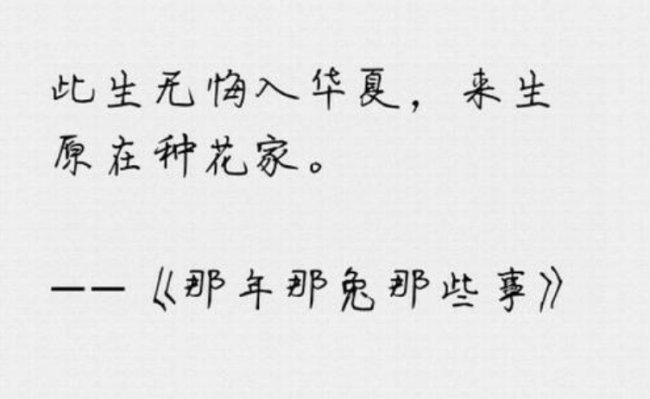 此生无悔入华夏，来生
原在种花家。
——《那年那兔那些事》